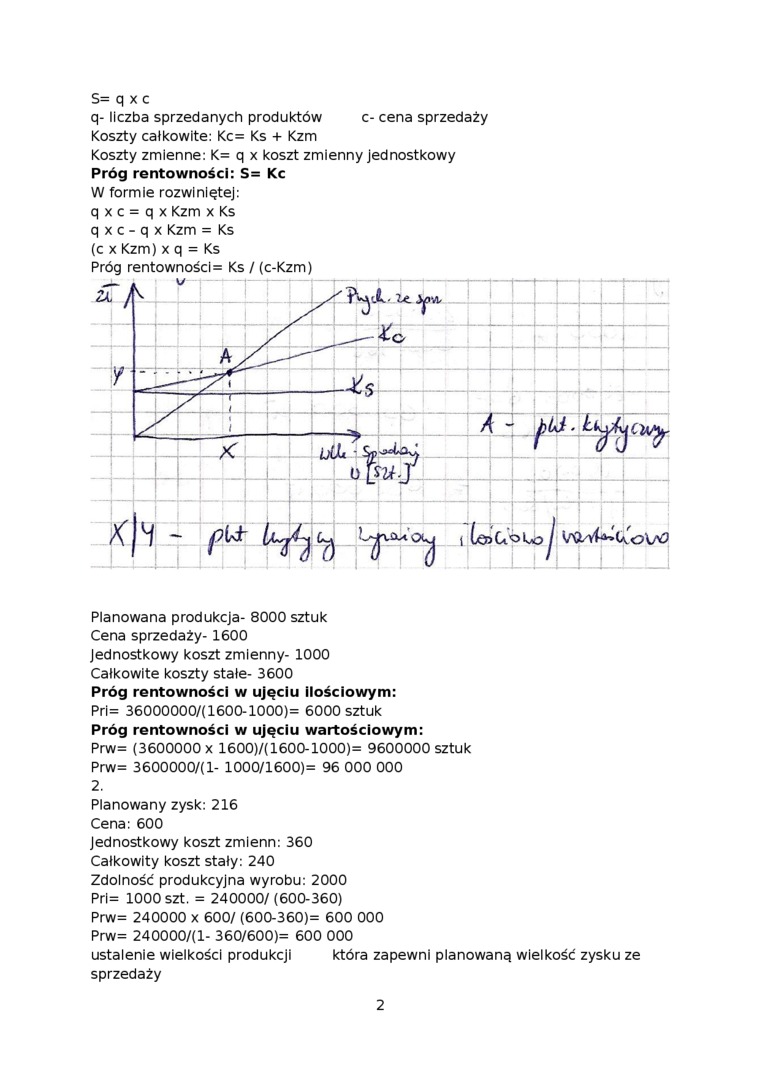 S= q x c
q- liczba sprzedanych produktów c- cena sprzedaży
Koszty całkowite: Kc= Ks + Kzm
Koszty zmienne: K= q x koszt zmienny jednostkowy
Próg rentowności: S= Kc
W formie rozwiniętej:
q x c = q x Kzm x Ks
q x c – q x Kzm = Ks
(c x Kzm) x q = Ks
Próg rentowności= Ks / (c-Kzm)
zł
Przych. ze sprz
Kc
A
y
Ks
A - pkt. krytyczny
X
Wlk. Sprzedaży
[szt.]
X/Y - pkt krytyczny wyrażony ilościowo/wartościowo
Planowana produkcja- 8000 sztuk
Cena sprzedaży- 1600
Jednostkowy koszt zmienny- 1000
Całkowite koszty stałe- 3600
Próg rentowności w ujęciu ilościowym:
Pri= 36000000/(1600-1000)= 6000 sztuk
Próg rentowności w ujęciu wartościowym:
Prw= (3600000 x 1600)/(1600-1000)= 9600000 sztuk
Prw= 3600000/(1- 1000/1600)= 96 000 000
2.
Planowany zysk: 216
Cena: 600
Jednostkowy koszt zmienn: 360
Całkowity koszt stały: 240
Zdolność produkcyjna wyrobu: 2000
Pri= 1000 szt. = 240000/ (600-360)
Prw= 240000 x 600/ (600-360)= 600 000
Prw= 240000/(1- 360/600)= 600 000
ustalenie wielkości produkcji która zapewni planowaną wielkość zysku ze
sprzedaży
2